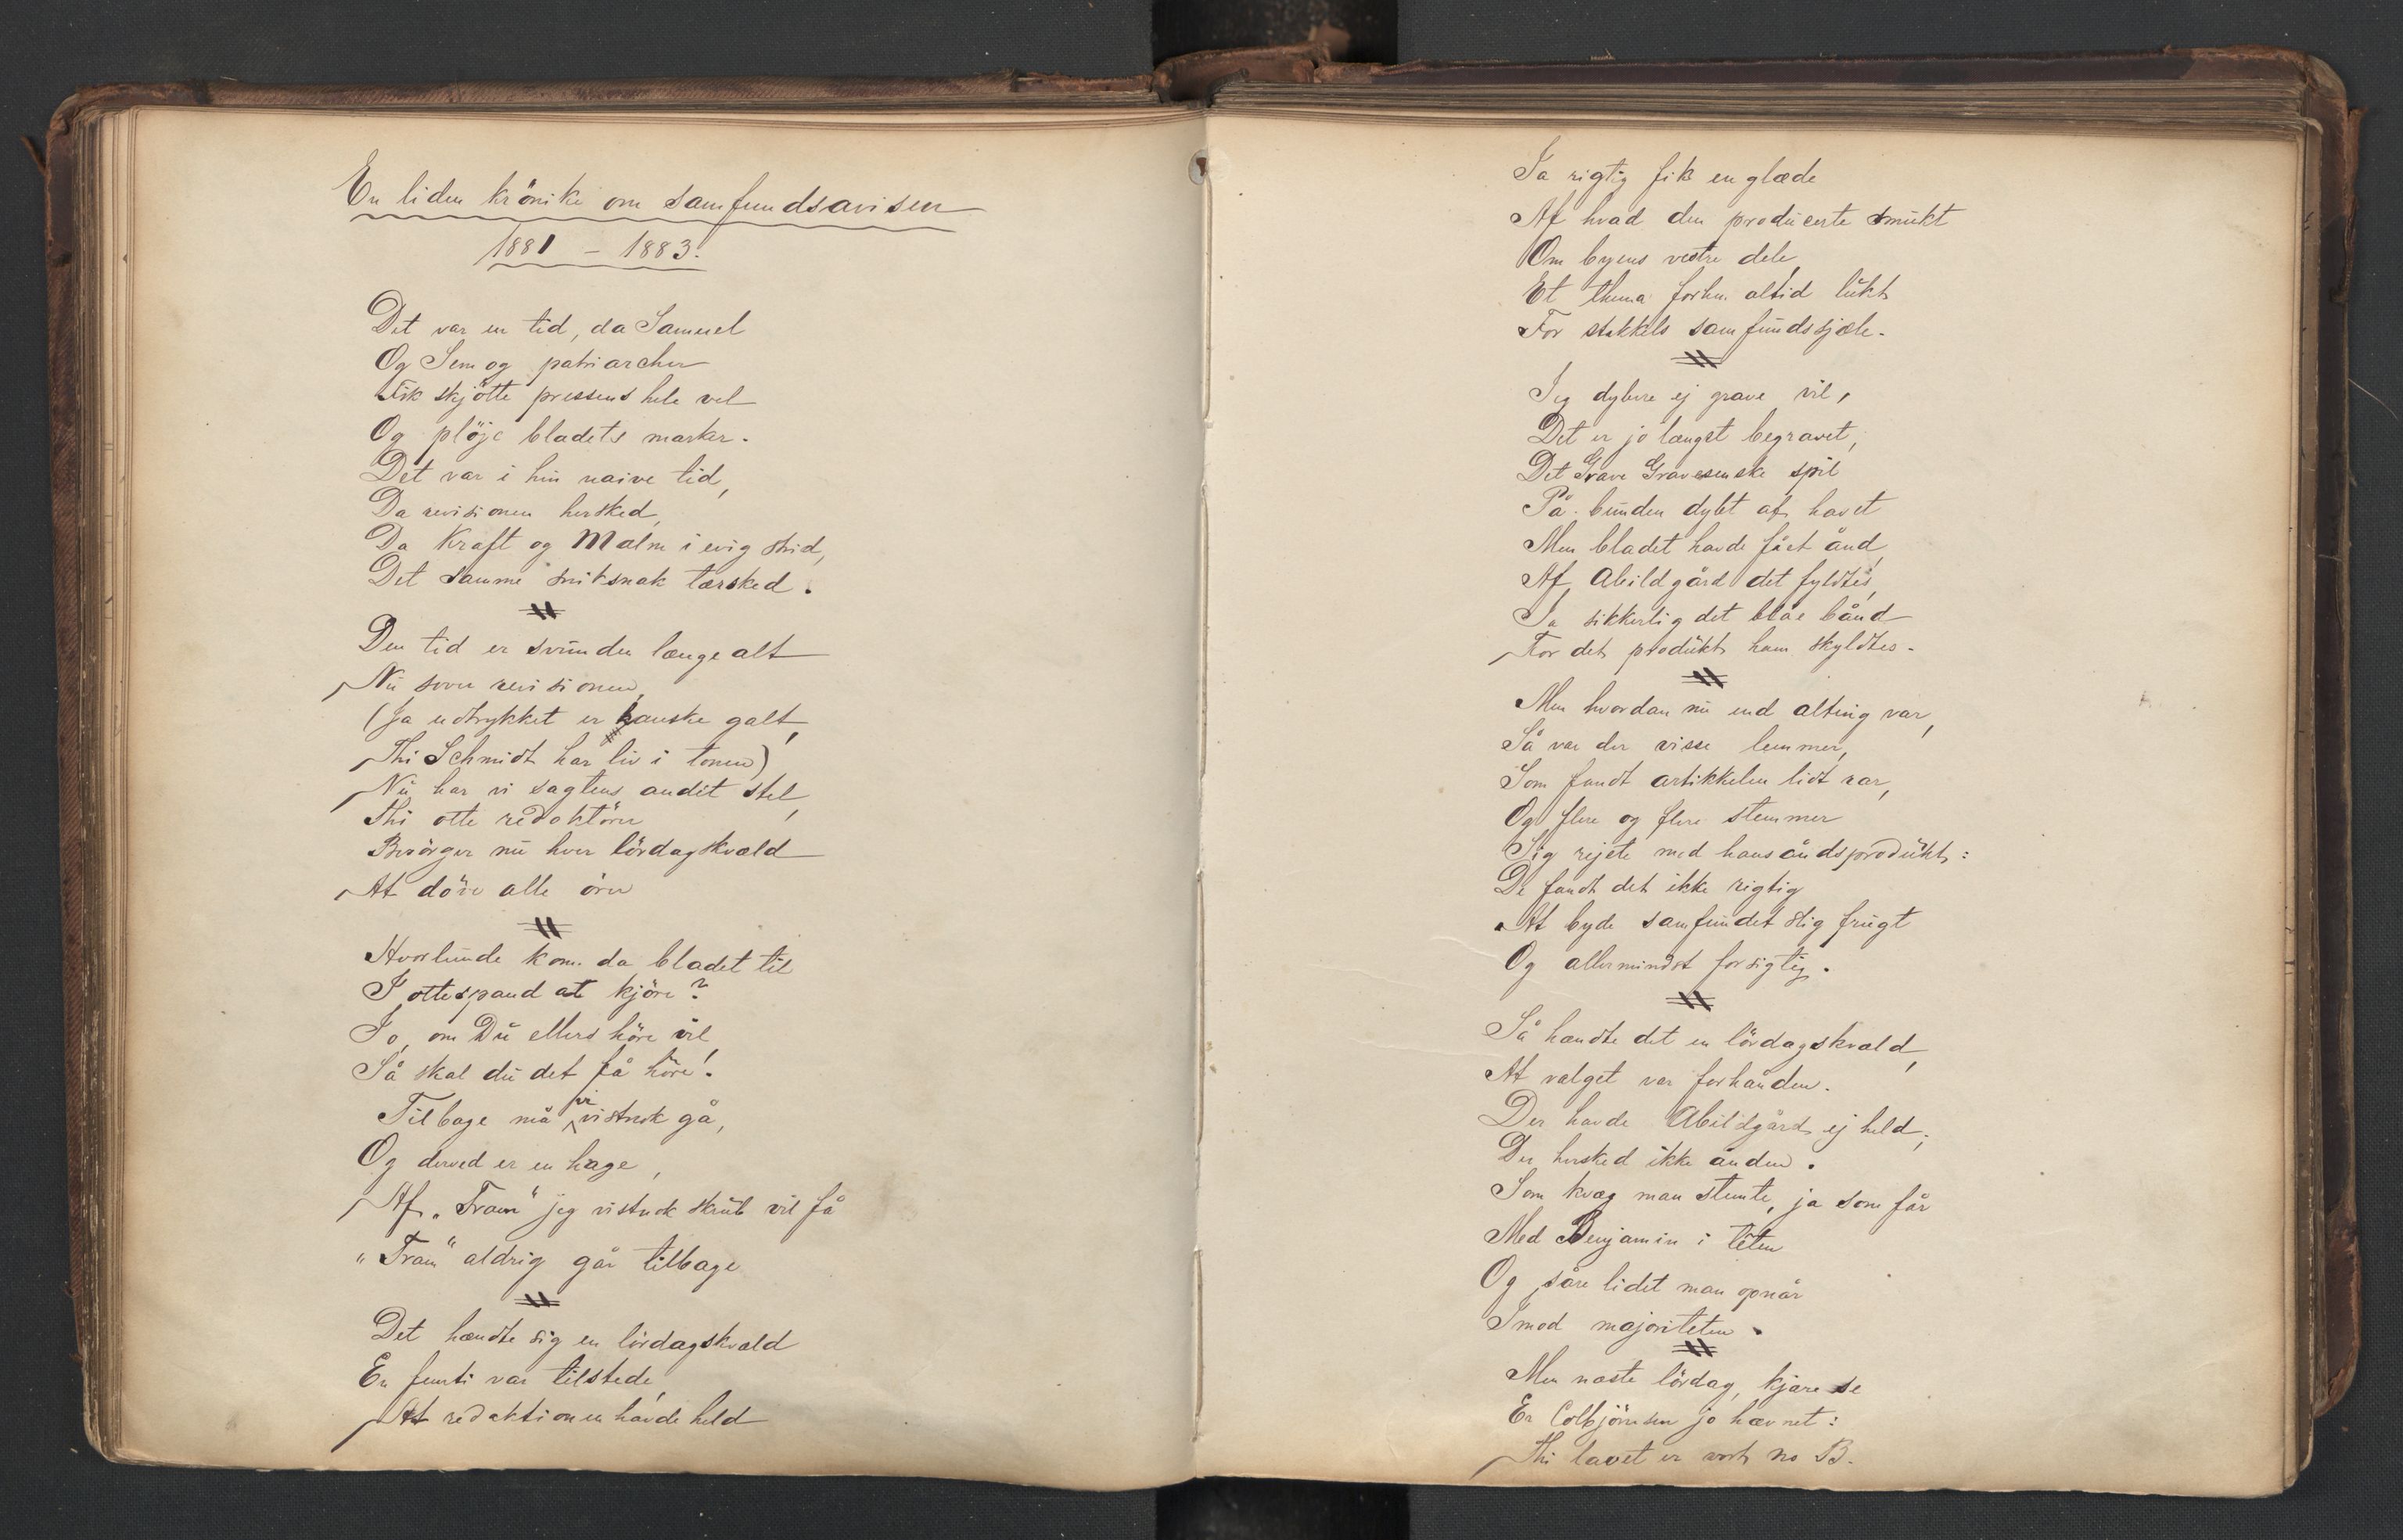 En liden krönike om samfundsavisen
1881 – 1883.
Det var en tid, da Samuel
Og Sem og patriarcher
Fik skjötte pressens hele vel
Og plöje bladets marker.
Det var i hin naive tid,
Da revisionen hersked,
Da Kraft og Malm i evig strid,
Det samme sniksnak tærsked.
Den tid er svunden længe alt
Nu sover revisionen,
(Ja udtrykket er kanske galt,
Thi Schmidt har liv i tonen)
Nu har vi sagtens andet stel,
Thi otte redaktörer
Besörger nu hver lördagskvæld
At döve alle örer
Hvorlunde kom da bladet til
I ottespand at kjöre?
Jo, om Du ellers höre vil,
Så skal du det få höre!
Tilbage må vi vistnok gå,
Og derved er en hage,
Af „Fram“ jeg vistnok skrub vil få
„Fram“ aldrig går tilbage
Det hændte sig en lördagskvæld
En femti var tilstede,
At redaktionen havde held
Ja rigtig fik en glæde
Af hvad den producerte smukt
Om byens vestre dele,
Et thema forhen altid lukt
For stakkels samfundssjæle.
Jeg dybere ej grave vil,
Det er jo længst begravet,
Det Grave Gravesenske spil
På bunden dybt af havet
Men bladet havde fået ånd,
Af Abildgård det fyldtes,
Ja sikkerlig det blåe bånd
For det produkt ham skyldtes.
Men hvordan nu end alting var,
Så var der visse lemmer,
Som fandt artikkelen lidt rar,
Og flere og flere stemmer
Sig rejste mod hans åndsprodukt:
De fandt det ikke rigtig
At byde samfundet slig frugt
Og allermindst forsigtig.
Så hændte det en lördagskvæld,
At valget var forhånden.
Der havde Abildgård ej held;
Der hersked ikke ånden.
Som kvæg man stemte, ja som får
Med Benjamin i têten
Og såre lidet man opnår
Imod majoriteten.
Men næste lördag, kjære se
Er Colbjörnsen jo hævnet:
Thi lavet er vort no B.